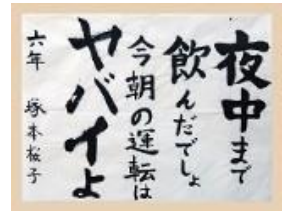 夜中まで
飲んだでしょ
今朝の運転は
ヤバイよ
六年 塚本桜子